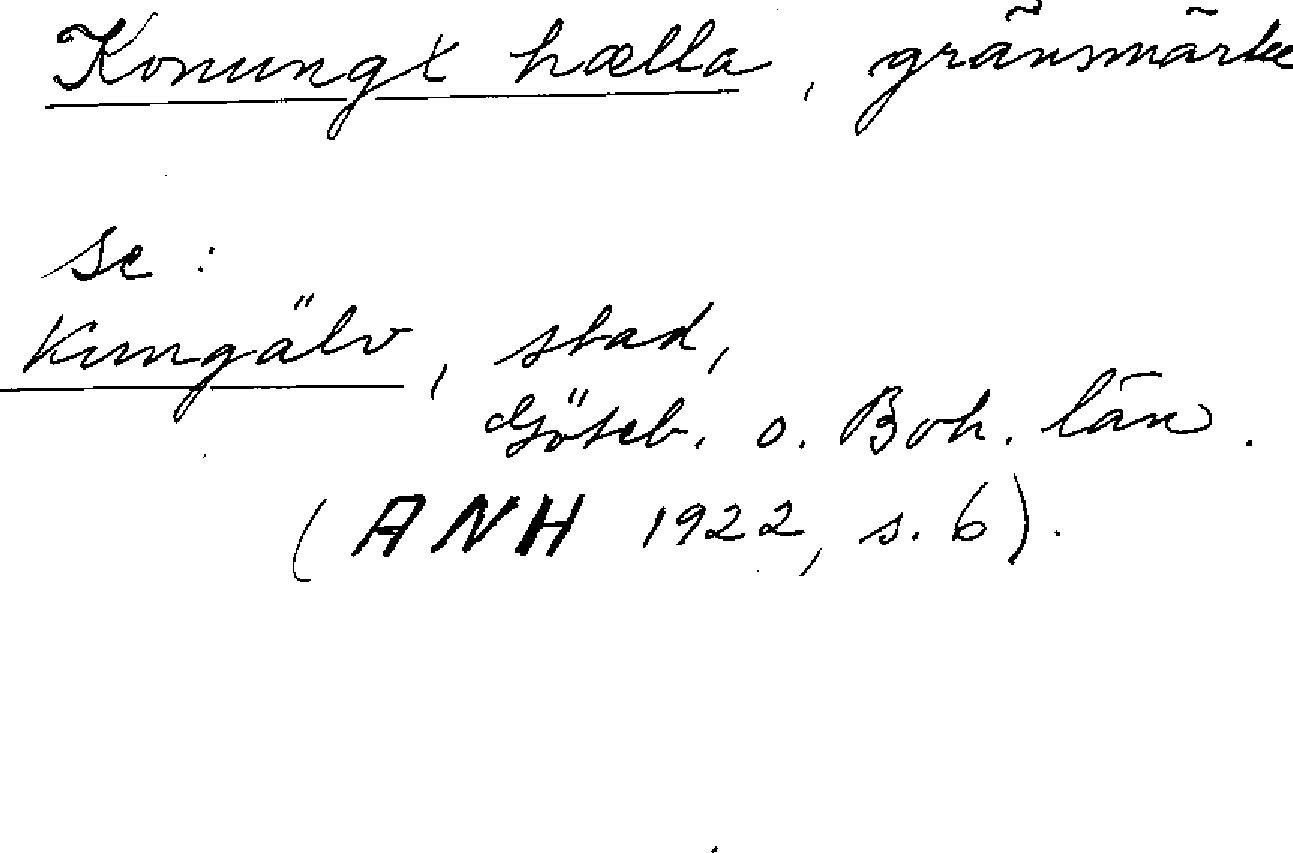 Konungx hælla, gränsmärke
se:
Kungälv, stad,
Göteb. o. Boh. län.
(ANH 1922, s. 6).